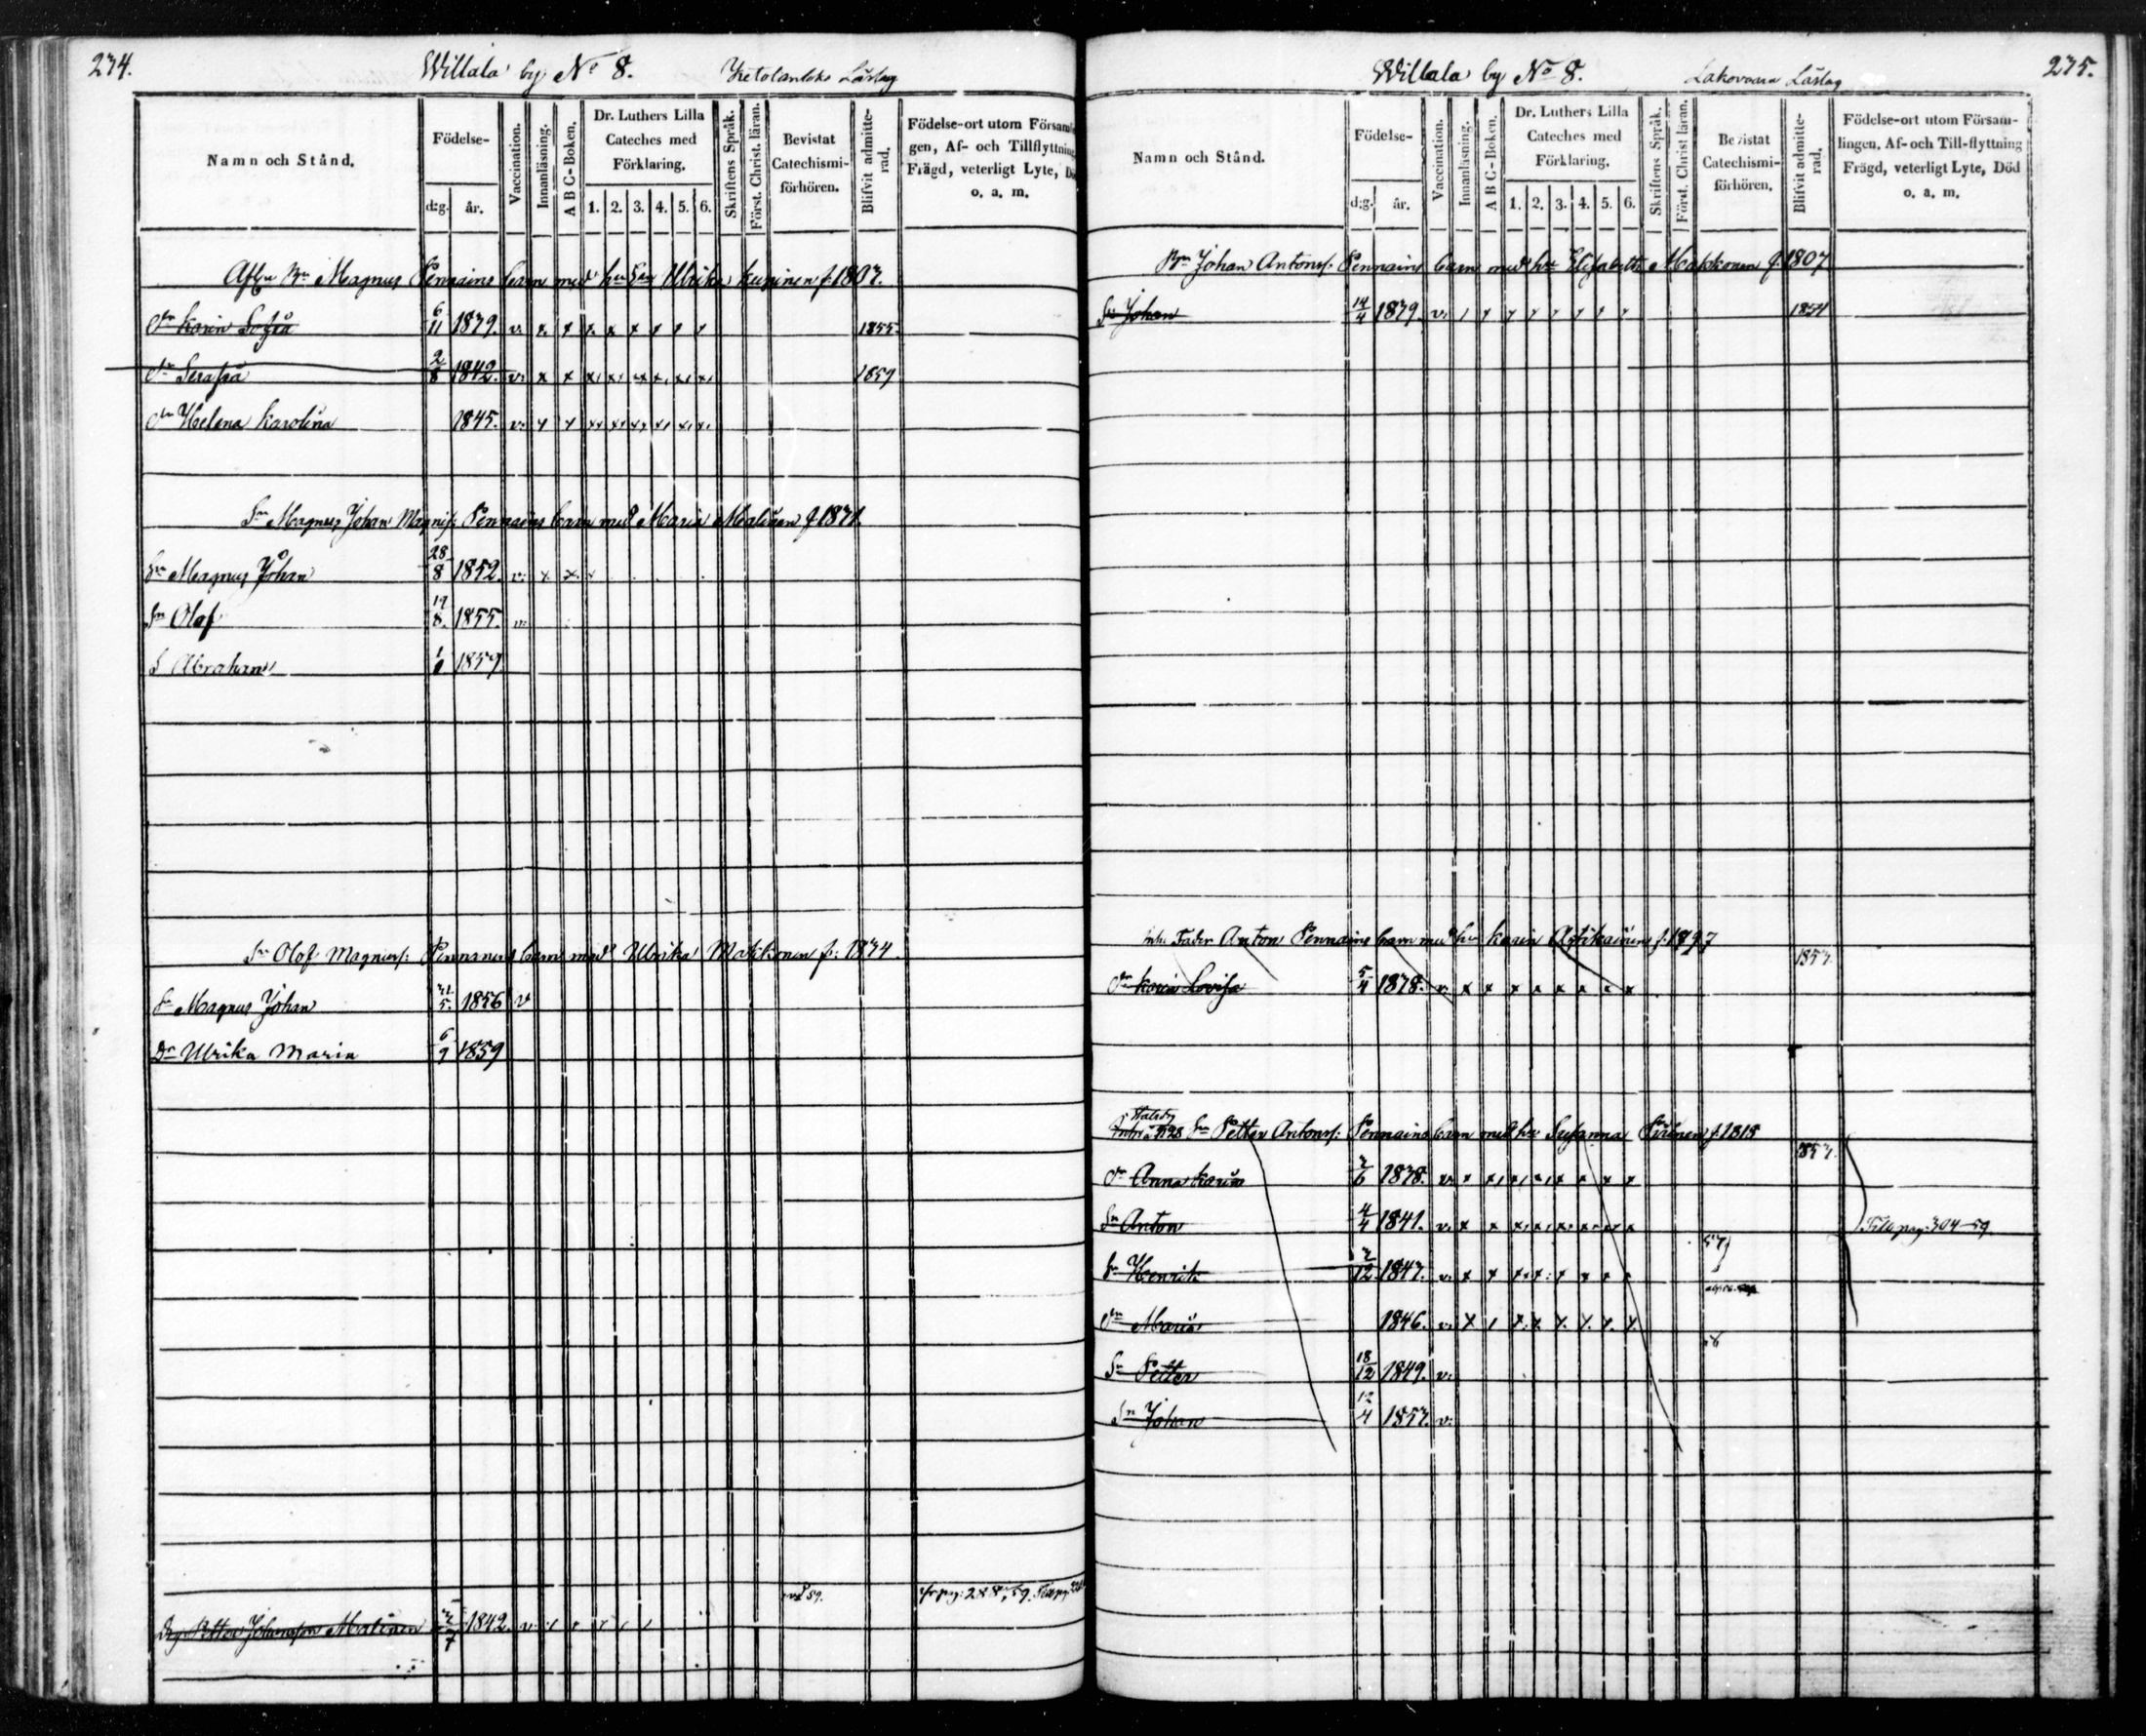 234.
Willala by No 8.
Läslag
Namn och Stånd.
Födelse-
d:g. år.
Vaccination.
Innanläsning.
A B C-Boken.
Dr. Luthers Lilla
Cateches med
Förklaring.
1. 2. 3. 4. 5. 6.
Skriftens Språk.
Först. Christ. läran.
Bevistat
Catechismi-
förhören.
Blifvit admitte-
rad.
Födelse-ort utom Försam
gen, Af- och Tillflyttning
Frägd, veterligt Lyte, Dö
o. a. m.
Magnus Pennains barn med Ulrika f. 1803.
Dr Karin Sofia 6/11 1839. v. x x x x x x x x 1855
Dr Serafia 2/8 1842. v. x x x x x x x x 1859
Dr Helena Karolina 1845. v. x x x x x x x x
Sn Magnus Johan Magnif: Pennains barn med Maria Malinen f. 1831.
Sn Magnus Johan 28/8 1852. v. x x x
Sn Olof 19/8 1855. v.
S Abraham 1859
Sn Olof Magnuss: Pennanens barn med Ulrika Makkonen f: 1834.
Sn Magnus Johan 1856 v
Dr Ulrika Maria 6/9 1859
59.
Petter Johansson Malinen 1842. v
235.
Willala by No 8.
Lakovaara Läslag
Namn och Stånd.
Födelse-
d:g. år.
Vaccination.
Innanläsning.
A B C-Boken.
Dr. Luthers Lilla
Cateches med
Förklaring.
1. 2. 3. 4. 5. 6.
Skriftens Språk.
Först. Christ läran.
Bevistat
Catechismi-
förhören.
Blifvit admitte-
rad.
Födelse-ort utom Försam-
lingen, Af- och Till-flyttning
Frägd, veterligt Lyte, Död
o. a. m.
Bn Johan Antonss: Pennains barn med hu Elisabeth Makkonen f. 1807
Sn Johan 14/4 1839. v. 1854
Anton Pennains barn med hu Karin f. 1797
1853.
Dr Karin Lovisa 5/4 1838. v. x x x x x x x x
Sn Petter Antonss: Pennains barn med hu Susanna Piirinen f. 1815
1853.
Dr Anna Karin 1838. v. x x x x x x x x
Sn Anton 4/4 1841. v. x x x x x x x x Till pag: 304-59.
57
Sn Henrik 1843. v. x x x x x x x x
Dr Maria 1846. v. x x x x x x x
Sn Petter 18/12 1849. v.
Sn Johan 12/4 1853. v.